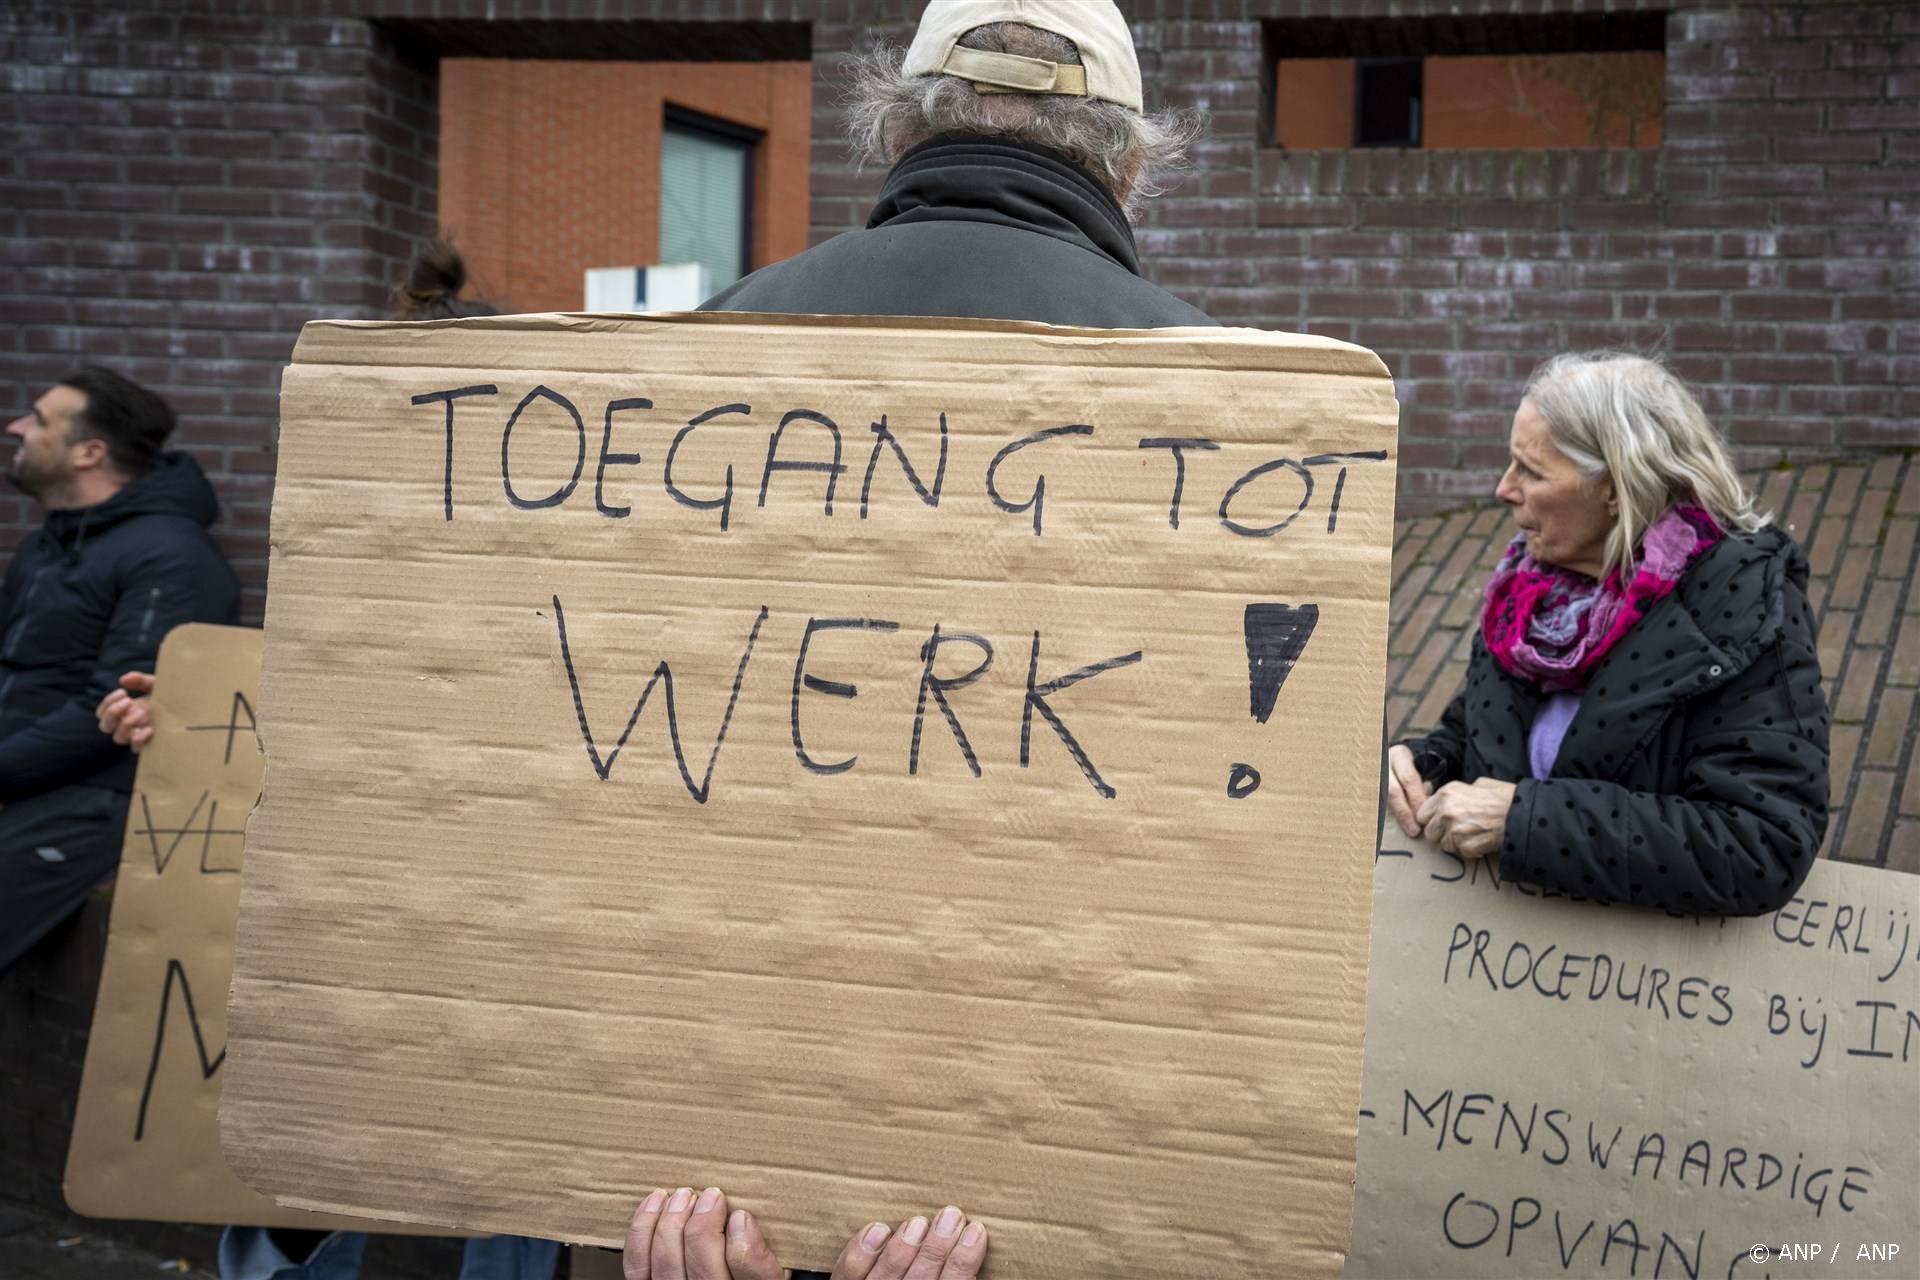 TOEGANG TOT
WERK!
VL
- EERLIJK
PROCEDURES BIJ IN
- MENSWAARDIGE
OPVANG
© ANP / ANP